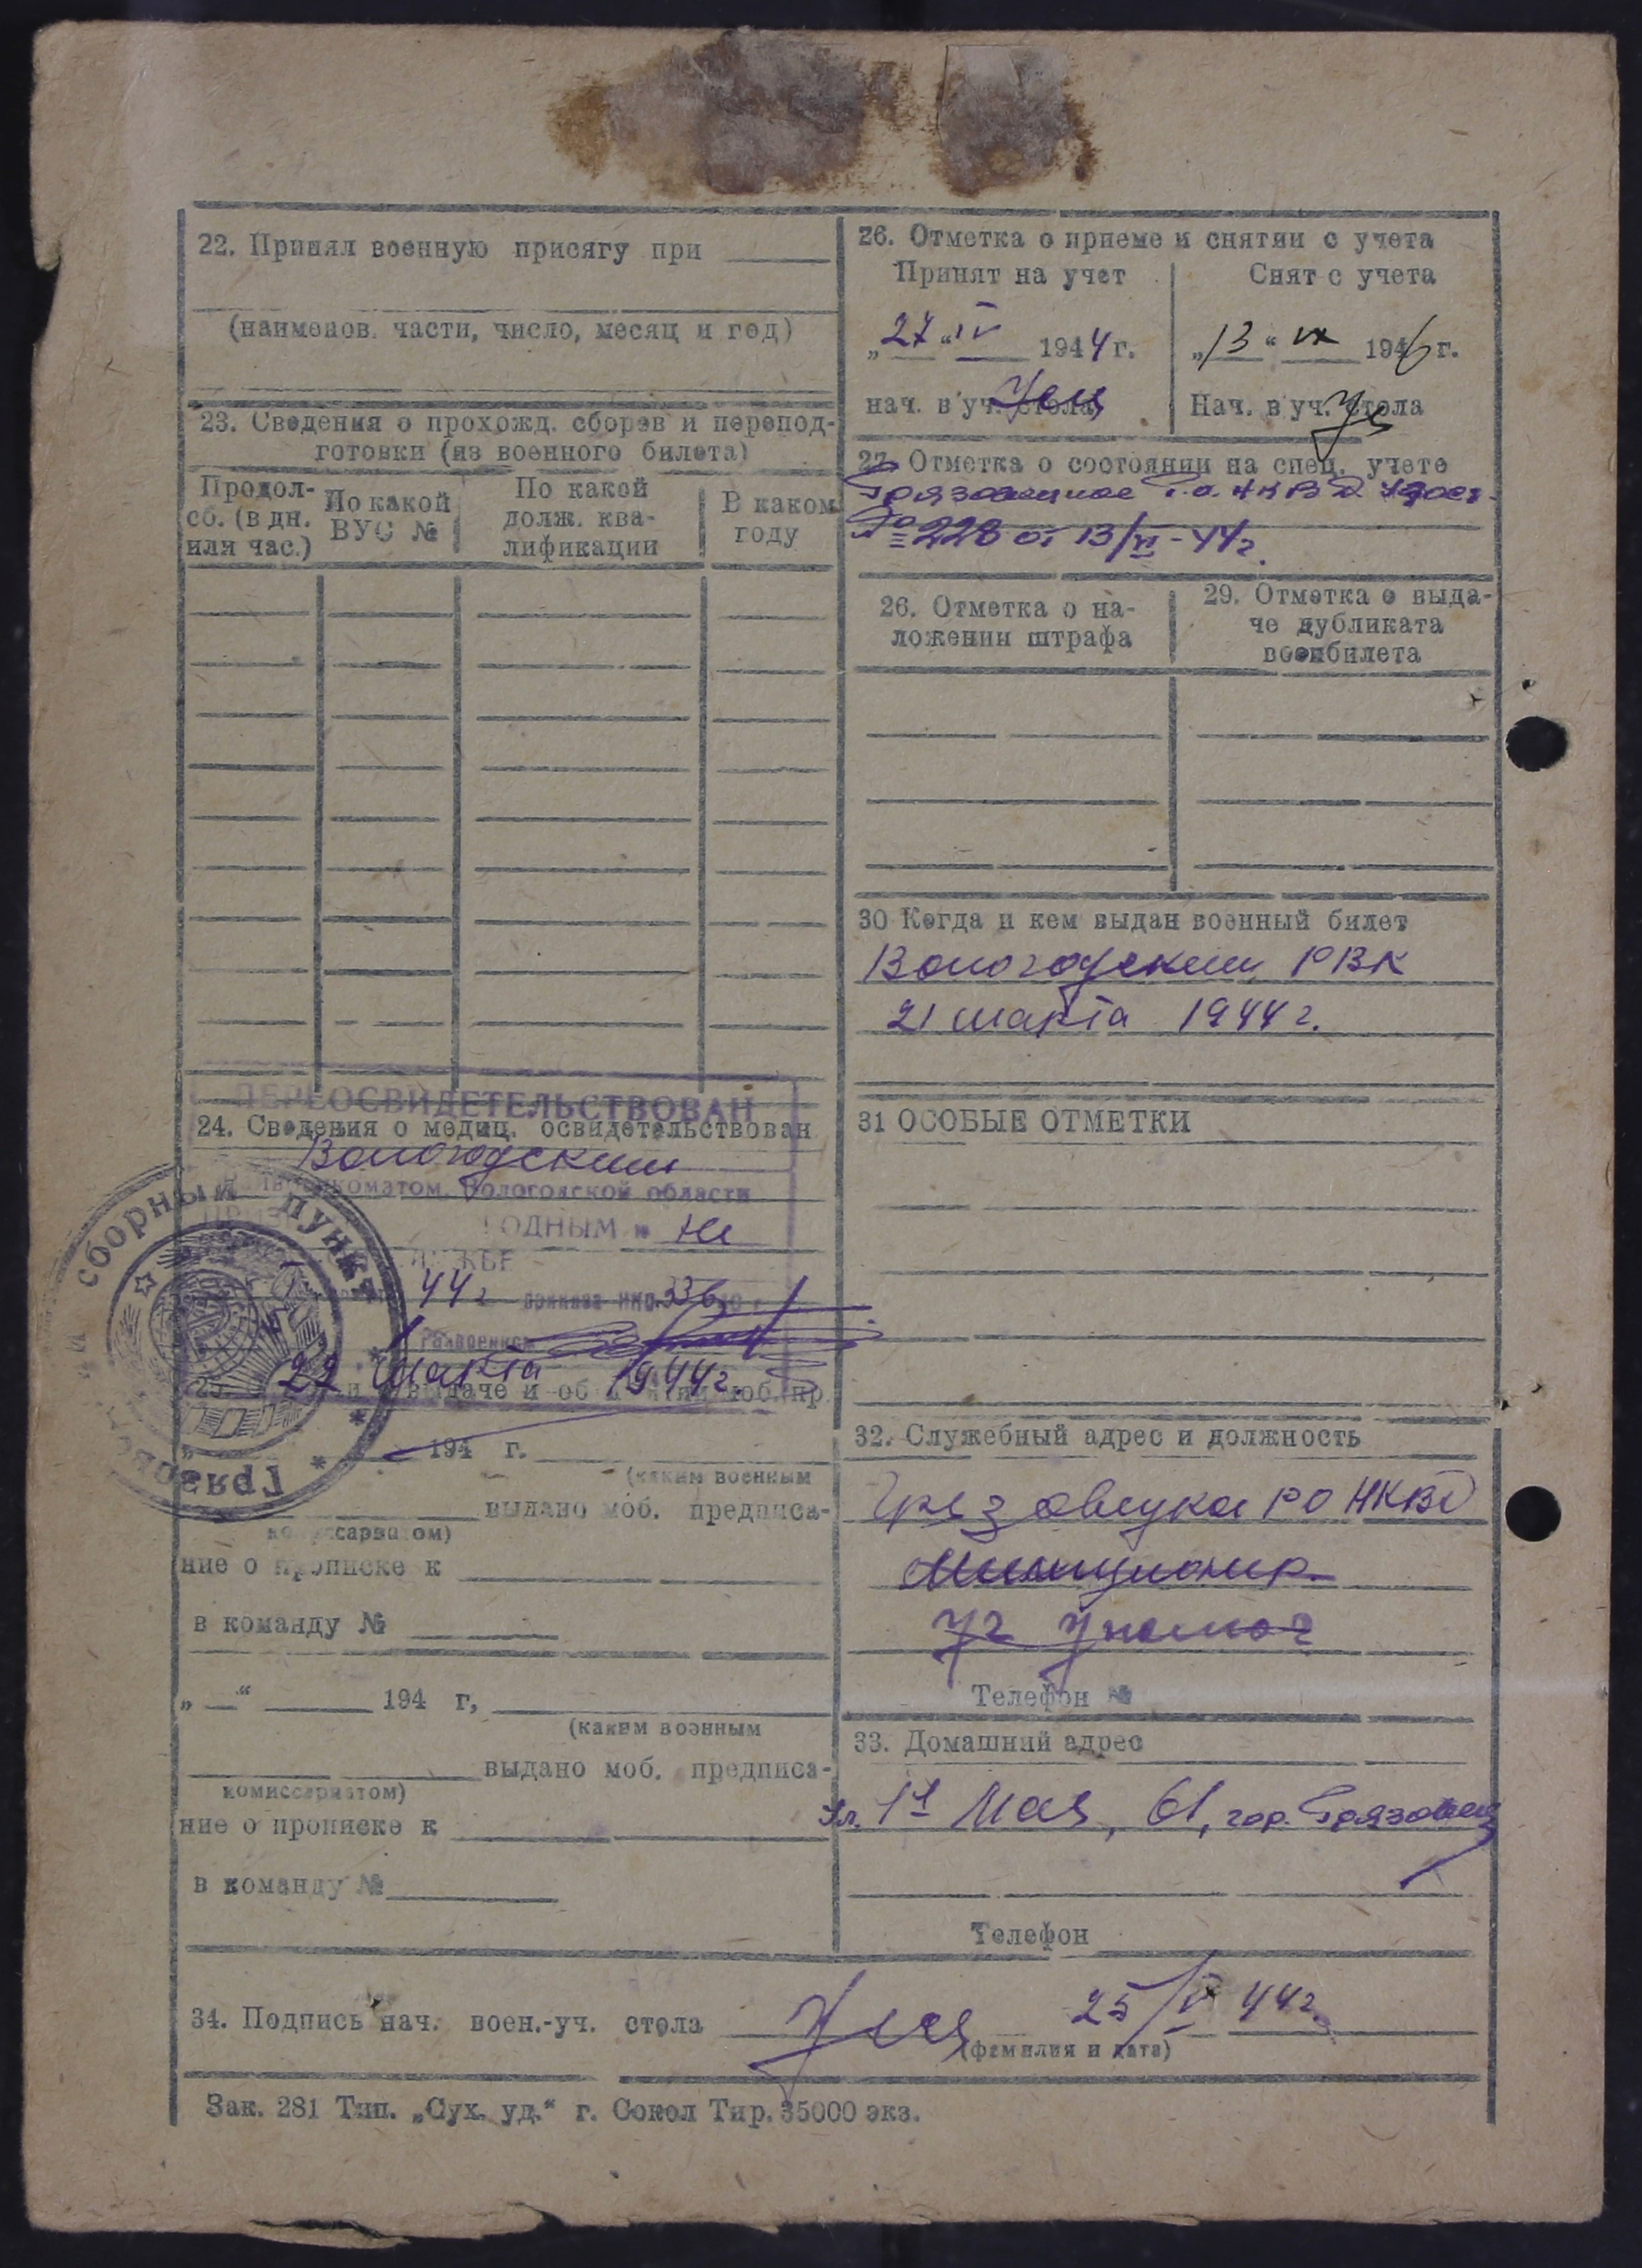 22. Принял военную присягу при
(наименов. части, число, месяц и год)
23. Сведения о прохожд. сборов и перепод-
готовки (из военного билета)
Продол-
сб. (в дн.
или час.)
По какой
ВУС №
По какой
долж. ква-
лификации
В каком
году
ПЕРЕОСВИДЕТЕЛЬСТВОВАН
24. Сведения о медиц. освидетельствован
Вологодским
Вологодской области
ГОДНЫМ к
44 г приказа НКО 336
Райвоенком
27 марта 1944 г.
выдаче и об моб. пр.
сборный пункт
Грязов
194 г.
(каким военным
выдано моб. предписа-
комиссариатом)
ние о прописке к
в команду №
„ “ 194 г,
(каким военным
выдано моб. предписа-
комиссариатом)
ние о прописке к
в команду №
26. Отметка о приеме и снятии с учета
Принят на учет
„27“ IV 1944 г.
нач. в уч. стола
Снят с учета
„13“ 1946 г.
Нач. в уч. стола
27. Отметка о состоянии на спец. учете
Грязовецкое Р.О. НКВД
№ 228 от 13/VI-44г.
26. Отметка о на-
ложении штрафа
29. Отметка о выда-
че дубликата
военбилета
30 Когда и кем выдан военный билет
Вологодским РВК
21 марта 1944 г.
31 ОСОБЫЕ ОТМЕТКИ
32. Служебный адрес и должность
РО НКВД
Милиционер
Уч Уполмоч
Телефон №
33. Домашний адрес
Ул. 1я Мая, 61, гор. Грязовец
Телефон
34. Подпись нач. воен.-уч. стола 25/V 44г.
(фамилия и дата)
Зак. 281 Тип. „Сух. уд.“ г. Сокол Тир. 35000 экз.